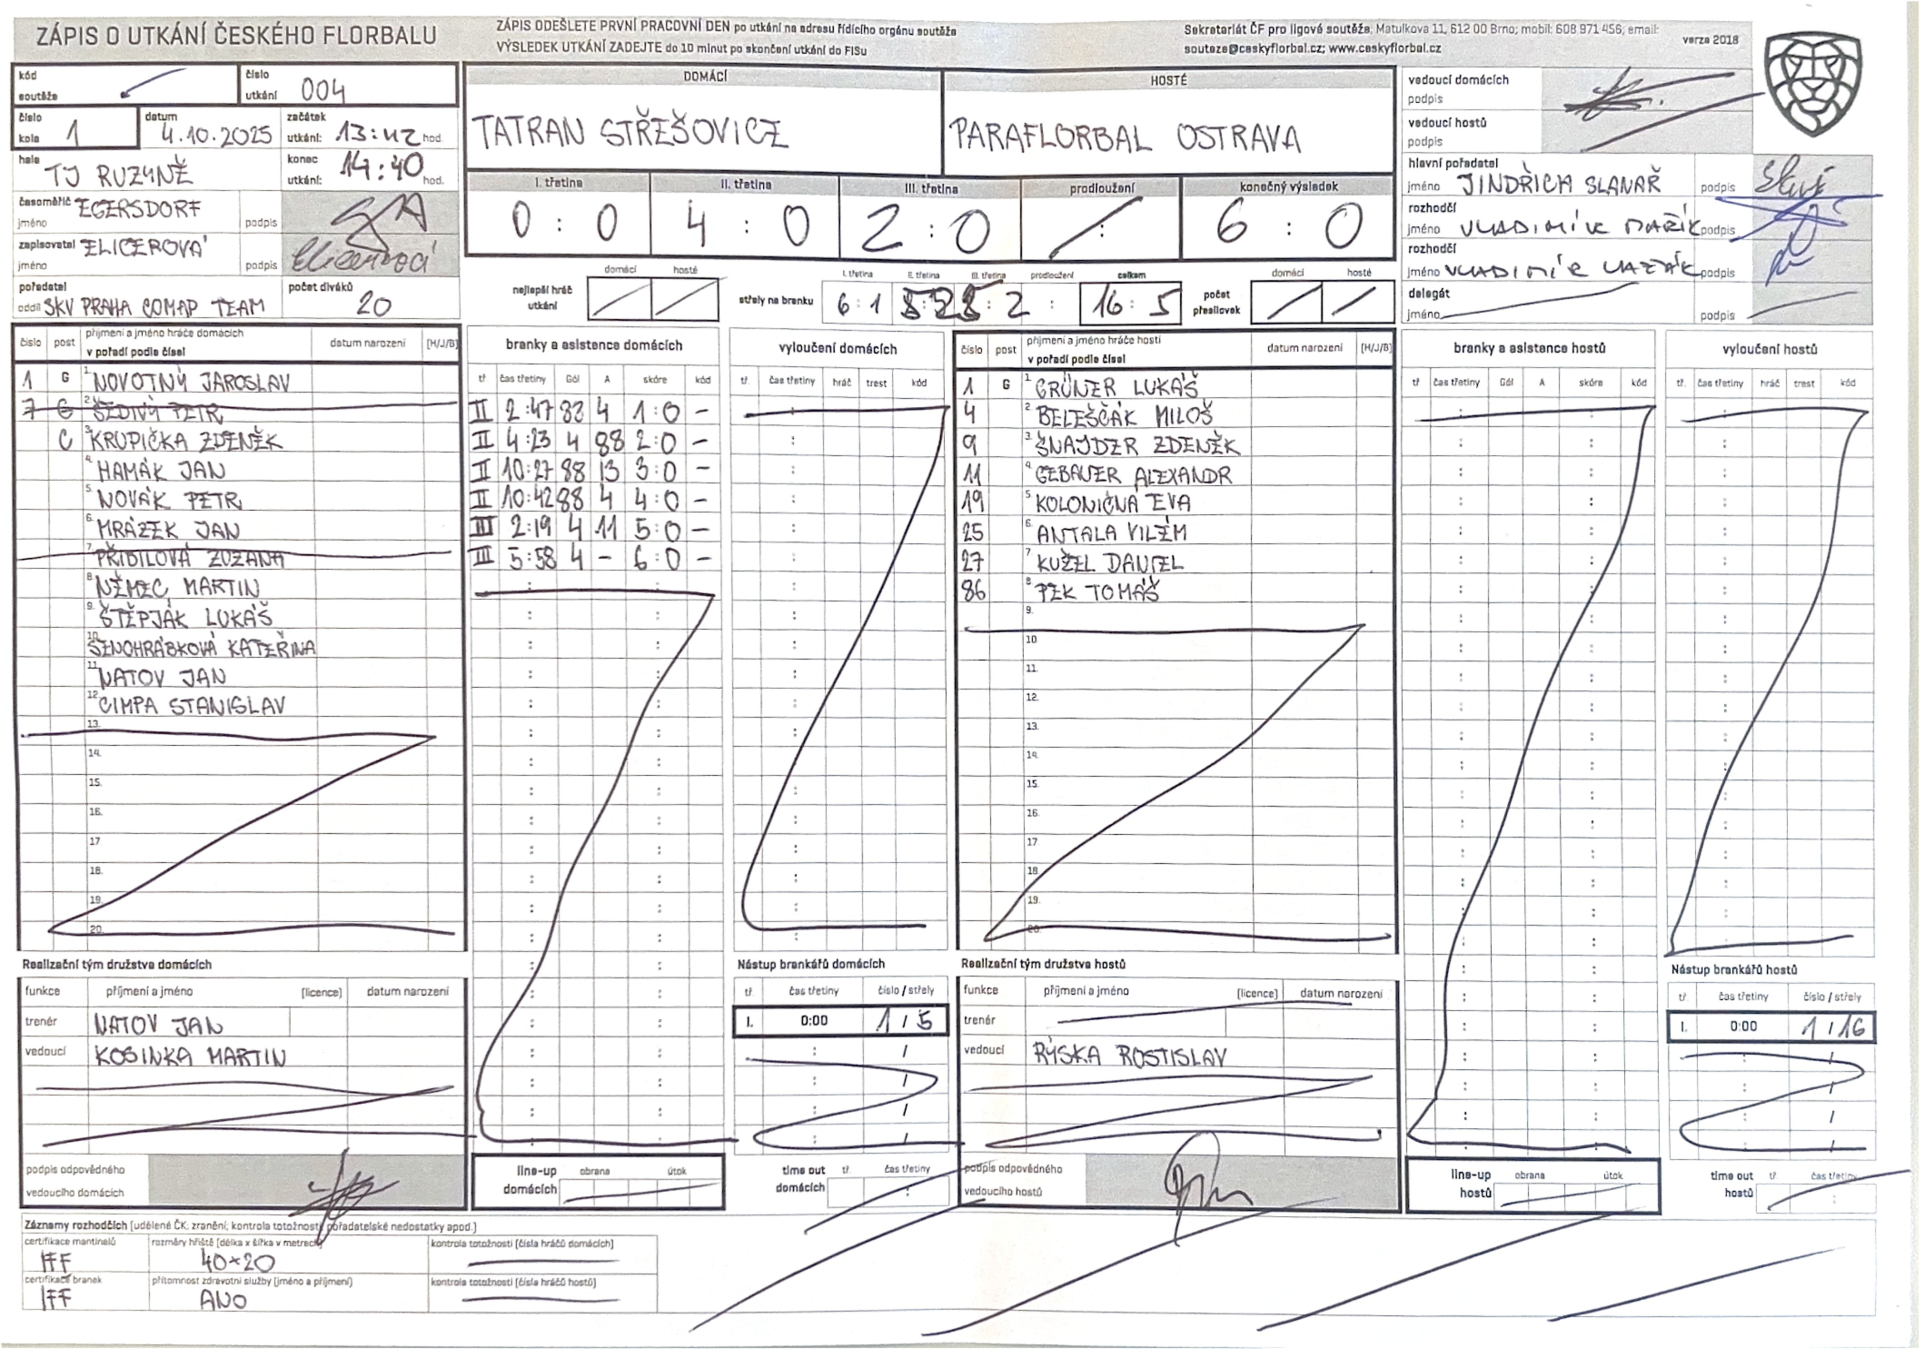 ZÁPIS O UTKÁNÍ ČESKÉHO FLORBALU
ZÁPIS ODEŠLETE PRVNÍ PRACOVNÍ DEN po utkání na adresu řídícího orgánu soutěže
VÝSLEDEK UTKÁNÍ ZADEJTE do 10 minut po skončení utkání do FISu
Sekretariát ČF pro ligové soutěže, Matulkova 11, 612 00 Brno; mobil: 608 971 456; email:
souteze@ceskyflorbal.cz; www.ceskyflorbal.cz
verze 2018
kód soutěže
číslo utkání 004
číslo kola 1
datum 4.10.2025
začátek utkání: 13:42 hod.
hala TJ RUZYNĚ
konec utkání: 14:40 hod.
časoměřič jméno EGERSDORF podpis
zapisovatel jméno ELICEROVÁ podpis
pořadatel oddíl SKV PRAHA COMAP TEAM
počet diváků 20
DOMÁCÍ
TATRAN STŘEŠOVICE
HOSTÉ
PARAFLORBAL OSTRAVA
I. třetina II. třetina III. třetina prodloužení konečný výsledek
0 : 0 4 : 0 2 : 0 : 6 : 0
nejlepší hráč utkání domácí hosté
střely na branku I. třetina II. třetina III. třetina prodloužení celkem
6 : 1 : 2 : 16 : 5
počet přesilovek domácí hosté
vedoucí domácích podpis
vedoucí hostů podpis
hlavní pořadatel jméno JINDŘICH SLANAŘ podpis
rozhodčí jméno VLADIMÍR MAŘÍK podpis
rozhodčí jméno VLADIMÍR podpis
delegát jméno podpis
číslo post příjmení a jméno hráče domácích v pořadí podle čísel datum narození [H/J/B]
1 G 1. NOVOTNÝ JAROSLAV
7 G 2. ŠEDIVÝ PETR
C 3. KRUPIČKA ZDENĚK
4. HAMÁK JAN
5. NOVÁK PETR
6. MRÁZEK JAN
7. PŘIBILOVÁ ZUZANA
8. NĚMEC MARTIN
9. ŠTĚPJÁK LUKÁŠ
10. ŠENOHRÁBKOVÁ KATEŘINA
11. NATOV JAN
12. CIMPA STANISLAV
13.
14.
15.
16.
17.
18.
19.
20.
branky a asistence domácích
tř. čas třetiny Gól A skóre kód
II 2:47 83 4 1:0 -
II 4:23 4 88 2:0 -
II 10:27 88 13 3:0 -
II 10:42 88 4 4:0 -
III 2:19 4 11 5:0 -
III 5:58 4 - 6:0 -
vyloučení domácích
tř. čas třetiny hráč trest kód
číslo post příjmení a jméno hráče hostí v pořadí podle čísel datum narození [H/J/B]
1 G 1. GRÜNER LUKÁŠ
4 2. BELEŠČÁK MILOŠ
9 3. ŠNAJDER ZDENĚK
11 4. GEBAUER ALEXANDR
19 5. KOLONIČNÁ EVA
25 6. ANTALA VILÉM
27 7. KUŽEL DANIEL
86 8. PEK TOMÁŠ
9.
10.
11.
12.
13.
14.
15.
16.
17
18.
19.
20.
branky a asistence hostů
tř čas třetiny Gól A skóre kód
vyloučení hostů
tř. čas třetiny hráč trest kód
Realizační tým družstva domácích
funkce příjmení a jméno [licence] datum narození
trenér NATOV JAN
vedoucí KOSINKA MARTIN
podpis odpovědného vedoucího domácích
Nástup brankářů domácích
tř. čas třetiny číslo / střely
I. 0:00 1 / 5
line-up domácích obrana útok
time out domácích tř. čas třetiny
Realizační tým družstva hostů
funkce příjmení a jméno [licence] datum narození
trenér
vedoucí RÝSKA ROSTISLAV
podpis odpovědného vedoucího hostů
Nástup brankářů hostů
tř čas třetiny číslo / střely
I. 0:00 1 / 16
line-up hostů obrana útok
time out hostů tř čas třetiny
Záznamy rozhodčích [udělené ČK, zranění, kontrola totožnosti, pořadatelské nedostatky apod.]
certifikace mantinelů IFF
rozměry hřiště [délka x šířka v metrech] 40×20
kontrola totožnosti [čísla hráčů domácích]
certifikace branek IFF
přítomnost zdravotní služby [jméno a příjmení] ANO
kontrola totožnosti [čísla hráčů hostů]